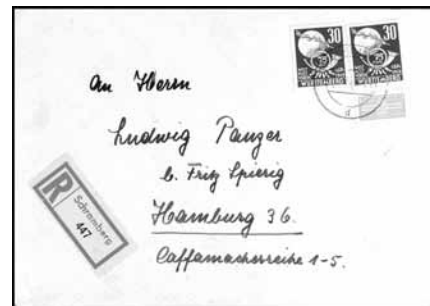 30 30
WÜRTTEMBERG WÜRTTEMBERG
An Herrn
Ludwig Panzer
b. Fritz Spierig
Hamburg 36.
Caffamacherreihe 1-5.
R Schramberg
447